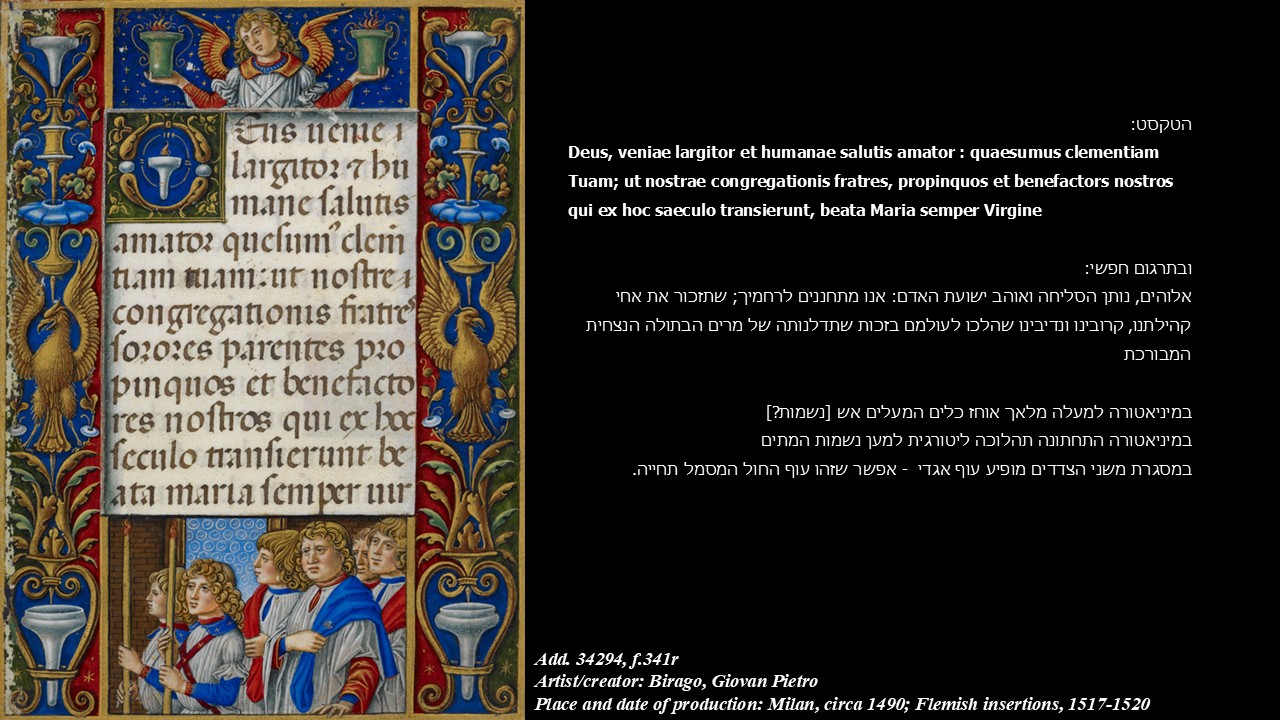 Eus uenie i
largitor ⁊ hu
mane salutis
amator quesum᾽ clem̄
tiam tuam: ut nostre i
congregationis fratreꝰ
sorores parentes pro
pinquos et benefacto
res nostros qui ex hoc
seculo transierunt be
ata maria semper uir
הטקסט:
Deus, veniae largitor et humanae salutis amator : quaesumus clementiam
Tuam; ut nostrae congregationis fratres, propinquos et benefactors nostros
qui ex hoc saeculo transierunt, beata Maria semper Virgine
ובתרגום חפשי:
אלוהים, נותן הסליחה ואוהב ישועת האדם: אנו מתחננים לרחמיך; שתזכור את אחי
קהילתנו, קרובינו ונדיבינו שהלכו לעולמם בזכות שתדלנותה של מרים הבתולה הנצחית
המבורכת
במיניאטורה למעלה מלאך אוחז כלים המעלים אש [נשמות?]
במיניאטורה התחתונה תהלוכה ליטורגית למען נשמות המתים
במסגרת משני הצדדים מופיע עוף אגדי - אפשר שזהו עוף החול המסמל תחייה.
Add. 34294, f.341r
Artist/creator: Birago, Giovan Pietro
Place and date of production: Milan, circa 1490; Flemish insertions, 1517-1520